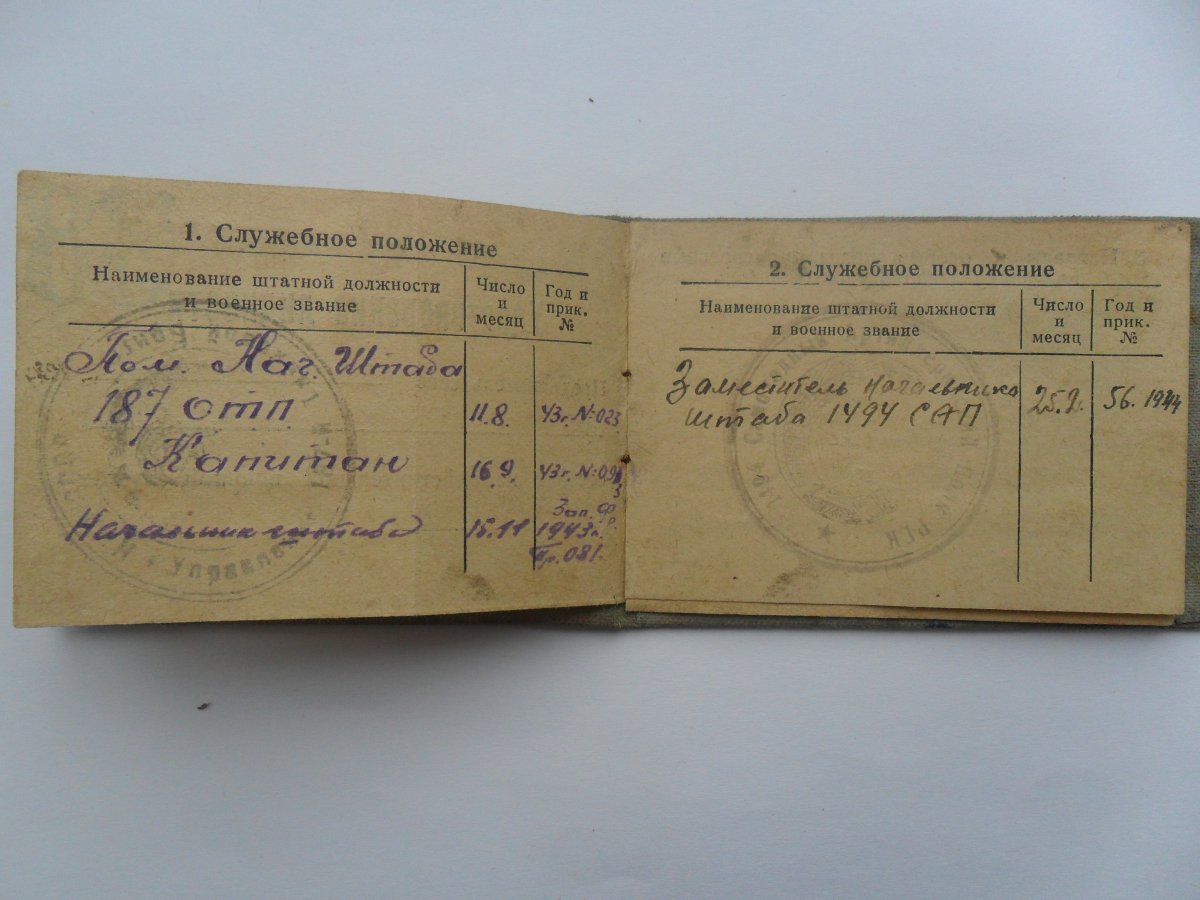 1. Служебное положение
Наименование штатной должности
и военное звание
Число
и
месяц
Год и
прик.
№
Пом. Нач. Штаба
187 отп 11.8. 43г. N: 023
Капитан 16 9. 43г.
Зап. Ф
Начальник штаба 15.11 1943г.
Пр. 081.
2. Служебное положение
Наименование штатной должности
и военное звание
Число
и
месяц
Год и
прик.
№
Заместитель начальника
штаба 1494 САП 56. 1944